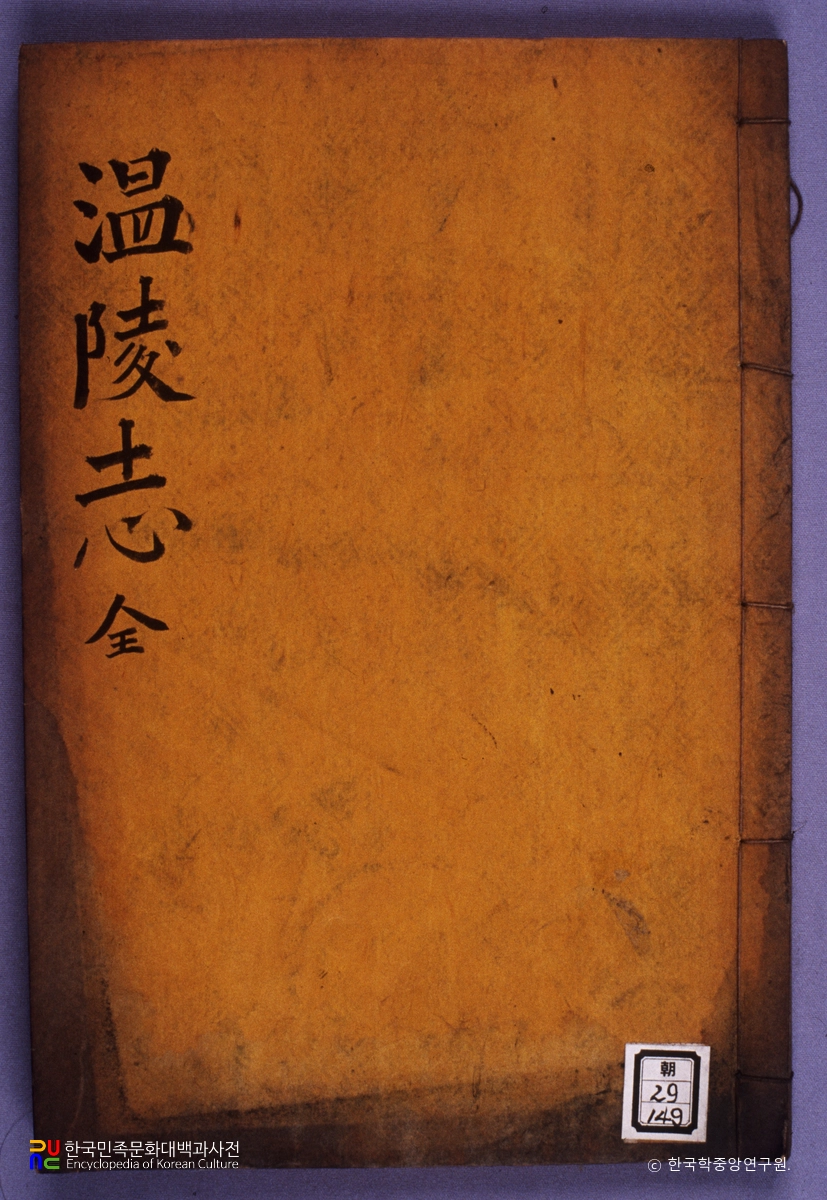 温陵志 全
朝
29
149
한국민족문화대백과사전
Encyclopedia of Korean Culture
© 한국학중앙연구원.